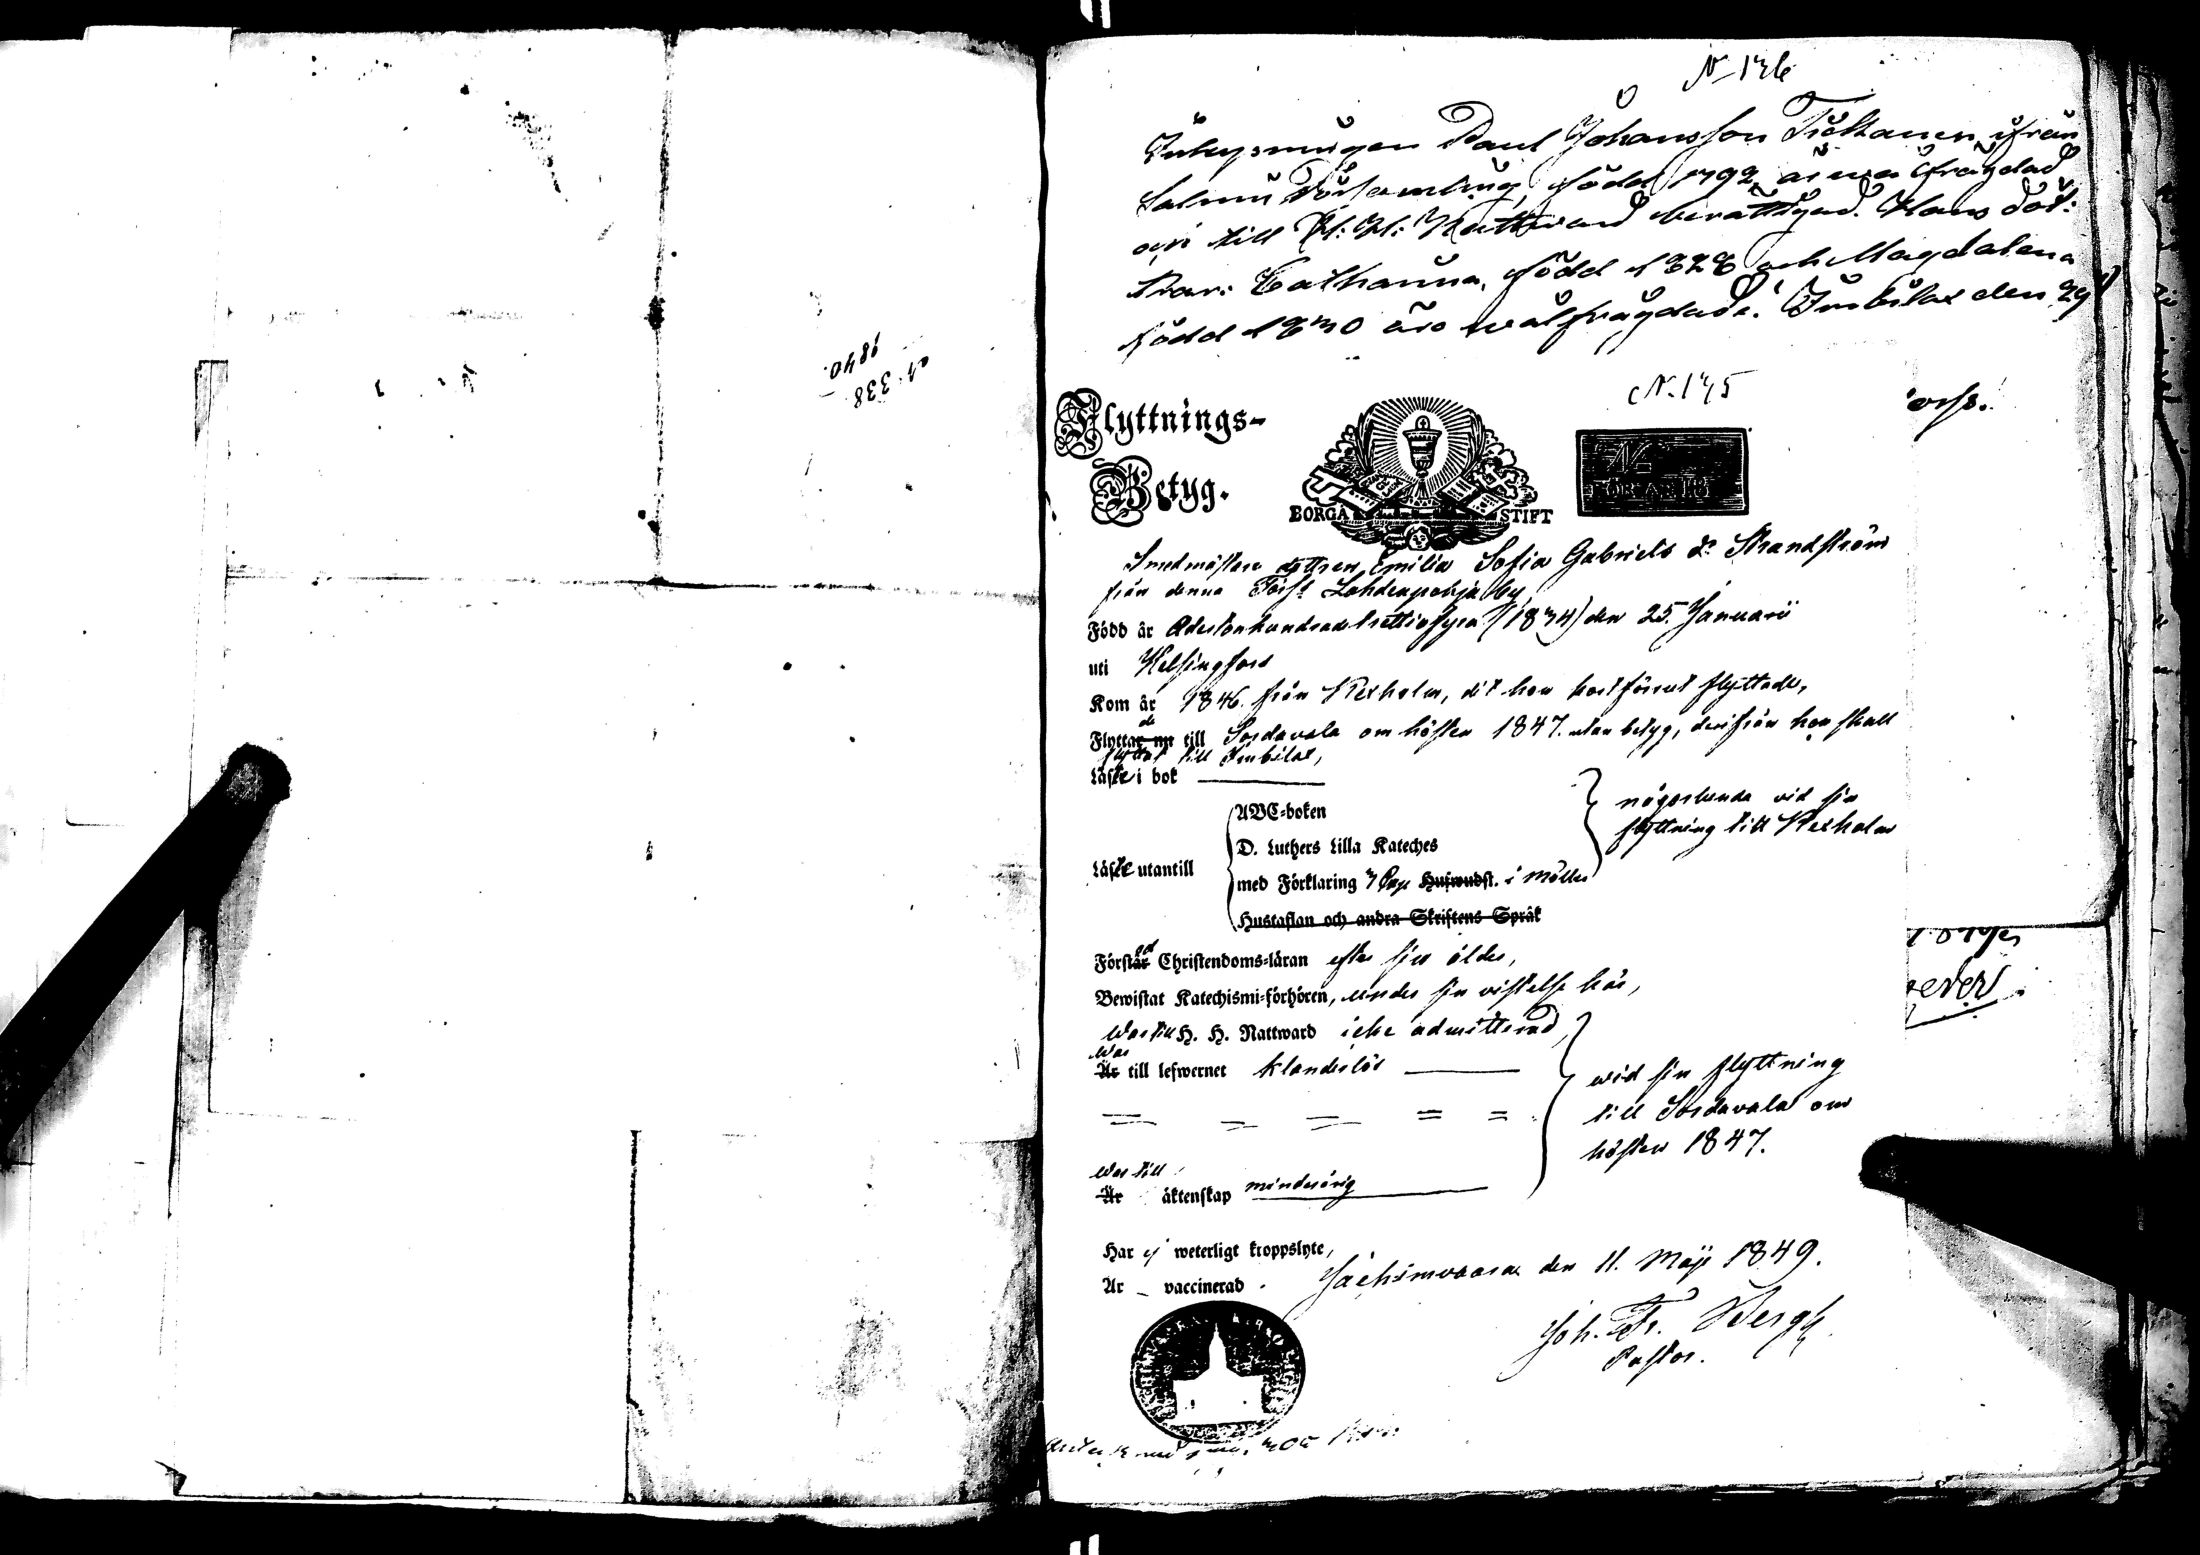 1840.
N. 338
N 136
Inhysningen Paul Johansson Tiettanen ifrån
Salmis Församling, född 1792 är wälfräjdad
och till H: H: Nattvard berättigad. Hans döt:
trar: Catharina, född 1828 och Magdalena
född 1830 äro wälfräjdade. Imbilax den 29
N. 135
Flyttnings-
Betyg.
BORGÅ STIFT
N.
FÖR ÅR 18
Smedmästare dottren Emilia Sofia Gabriels dr Strandström
från denna Förs: Lahdenpohja by,
Född år Adertonhundradetrettiofyra (1834) den 25. Januarii
uti Helsingfors
Kom år 1846. från Kexholm, dit hon kort förut flyttade,
Flyttade till Sordavala om hösten 1847. utan betyg, derifrån hon skall
flyttat till Imbilax,
Läste i bok
ABC-boken
D. Luthers Lilla Kateches
Läste utantill
med Förklaring 3 Hufwudst. i möller
Hustaflan och andra Skriftens Språk
någorlunda vid sin
flyttning till Kexholm
Förstod Christendoms-läran efter sin ålder,
Bewistat Katechismi-förhören, under sin vistelse här,
War till H. H. Nattward icke admitterad,
War
Är till lefwernet klanderlös
wid sin flyttning
till Sordavala om
hösten 1847.
War till
Är äktenskap minderårig
Har ej weterligt kroppslyte,
Är vaccinerad.
Jackimvaara den 11. Maji 1849.
Joh. Fr. Bergh
Pastor.